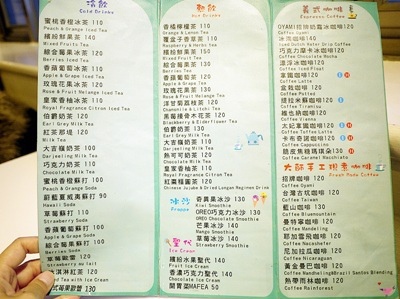 冷飲
Cold Drinks
蜜桃香橙冰茶 110
Peach & Orange Iced Tea
繽紛鮮果茶 140
Mixed Fruits Tea
綜合莓果冰茶 120
Berries Tea
香蘋葡萄冰茶 120
Apple & Grape Iced Tea
玫瑰花果冰茶 120
Rose & Fruit Melange Iced Tea
皇家香柚冰茶 120
Royal Fragrance Citron Iced Tea
伯爵奶茶 120
Earl Grey Milk Tea
紅茶那堤 120
Milk Tea
大吉嶺奶茶 120
Darjeeling Milk Tea
巧克力奶茶 110
Chocolate Milk Tea
蜜桃香橙蘇打 110
Peach & Orange Soda
蔚藍夏威夷蘇打 90
Hawaii Soda
草莓蘇打 110
Strawberry Soda
香蘋葡萄蘇打 110
Apple & Grape Soda
綜合莓果蘇打 110
Berries Soda
草莓歐蕾 120
Strawberry au lait
冰淇淋紅茶 120
Iced Tea with Ice Cream
莓果歐蕾 130
熱飲
Hot Drinks
香橘檸檬茶 110
Orange & Lemon Tea
覆盆子香草茶 110
Raspberry & Herbal Tea
繽紛鮮果茶 150
Mixed Fruits Tea
綜合莓果茶 130
Berries Tea
香蘋葡萄茶 130
Apple & Grape Tea
玫瑰花果茶 130
Rose & Fruit Melange Tea
洋甘菊荔枝茶 120
Chamomile & Litchi Tea
黑莓接骨木花茶 120
Blackberry & Elderflower Tea
伯爵奶茶 130
Earl Grey Milk Tea
大吉嶺奶茶 130
Darjeeling Milk Tea
熱可可奶茶 120
Chocolate Milk Tea
皇家香柚茶 120
Royal Fragrance Citron Tea
紅棗桂圓茶 120
冰沙
Frappe
奇異果冰沙 130
Kiwi Smoothie
OREO巧克力冰沙 130
OREO Chocolate Smoothie
芒果冰沙 140
Mango Smoothie
草莓冰沙 140
Strawberry Smoothie
聖代
Ice Cream
繽紛水果聖代 140
Fruit Ice Cream
香濃巧克力聖代 140
Chocolate Ice Cream
開胃菜MAFEA 50
義式咖啡
Espresso Coffee
冰滴咖啡 140
Iced Dutch Water Drip Coffee
巧克力摩卡冰咖啡 120
Coffee Mocha
漂浮冰咖啡 120
Coffee Iced Float
拿鐵咖啡 120
Coffee Latte
盒栽咖啡 120
提拉米蘇咖啡 120
Coffee Tiramisu
維也納咖啡 120
Coffee Vienna
太妃拿鐵咖啡 120
Coffee Toffee Latte
卡布奇諾咖啡 120
Coffee Cappuccino
脆皮焦糖瑪琪朵 130
Coffee Caramel Macchiato
大師手工現煮咖啡
招牌咖啡 120
Coffee Oyami
台灣古坑咖啡 120
Coffee Taiwan
藍山咖啡 120
Coffee Bluemountain
曼特寧咖啡 120
Coffee Mandheling
耶加雪飛咖啡 120
尼加拉瓜咖啡 120
Coffee Nicaragua
黃金曼巴咖啡 120
熱帶雨林咖啡 120
Coffee Rainforest